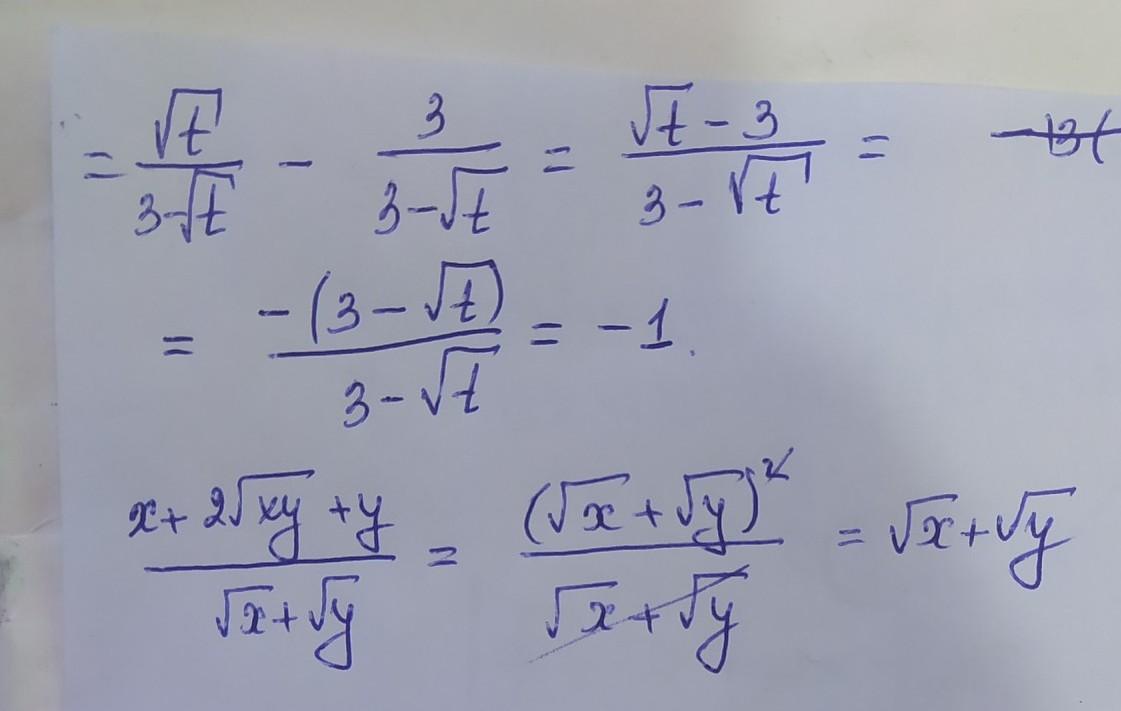 = √t / (3-√t) - 3 / (3-√t) = (√t - 3) / (3 - √t) =
= -(3 - √t) / (3 - √t) = -1.
(x + 2√xy + y) / (√x + √y) = (√x + √y)² / (√x + √y) = √x + √y